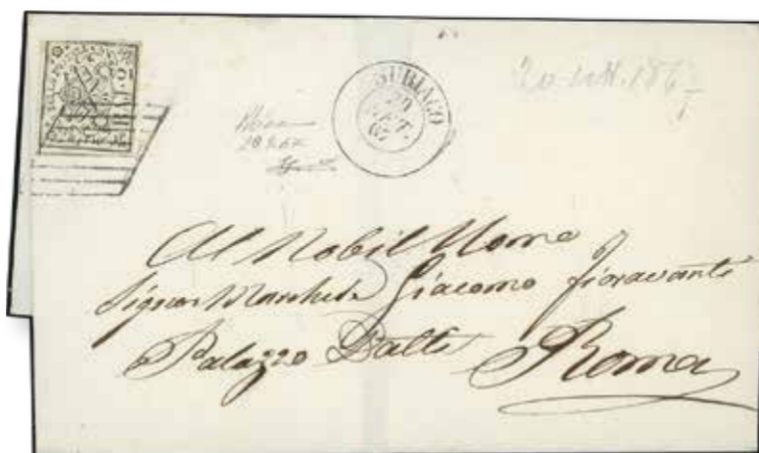 BAJ. 2
SUBIACO
20
SET.
67
20 sett. 1867
Al Nobil Uomo
Signor Marchese Giacomo Fioravanti
Palazzo Dalti
Roma